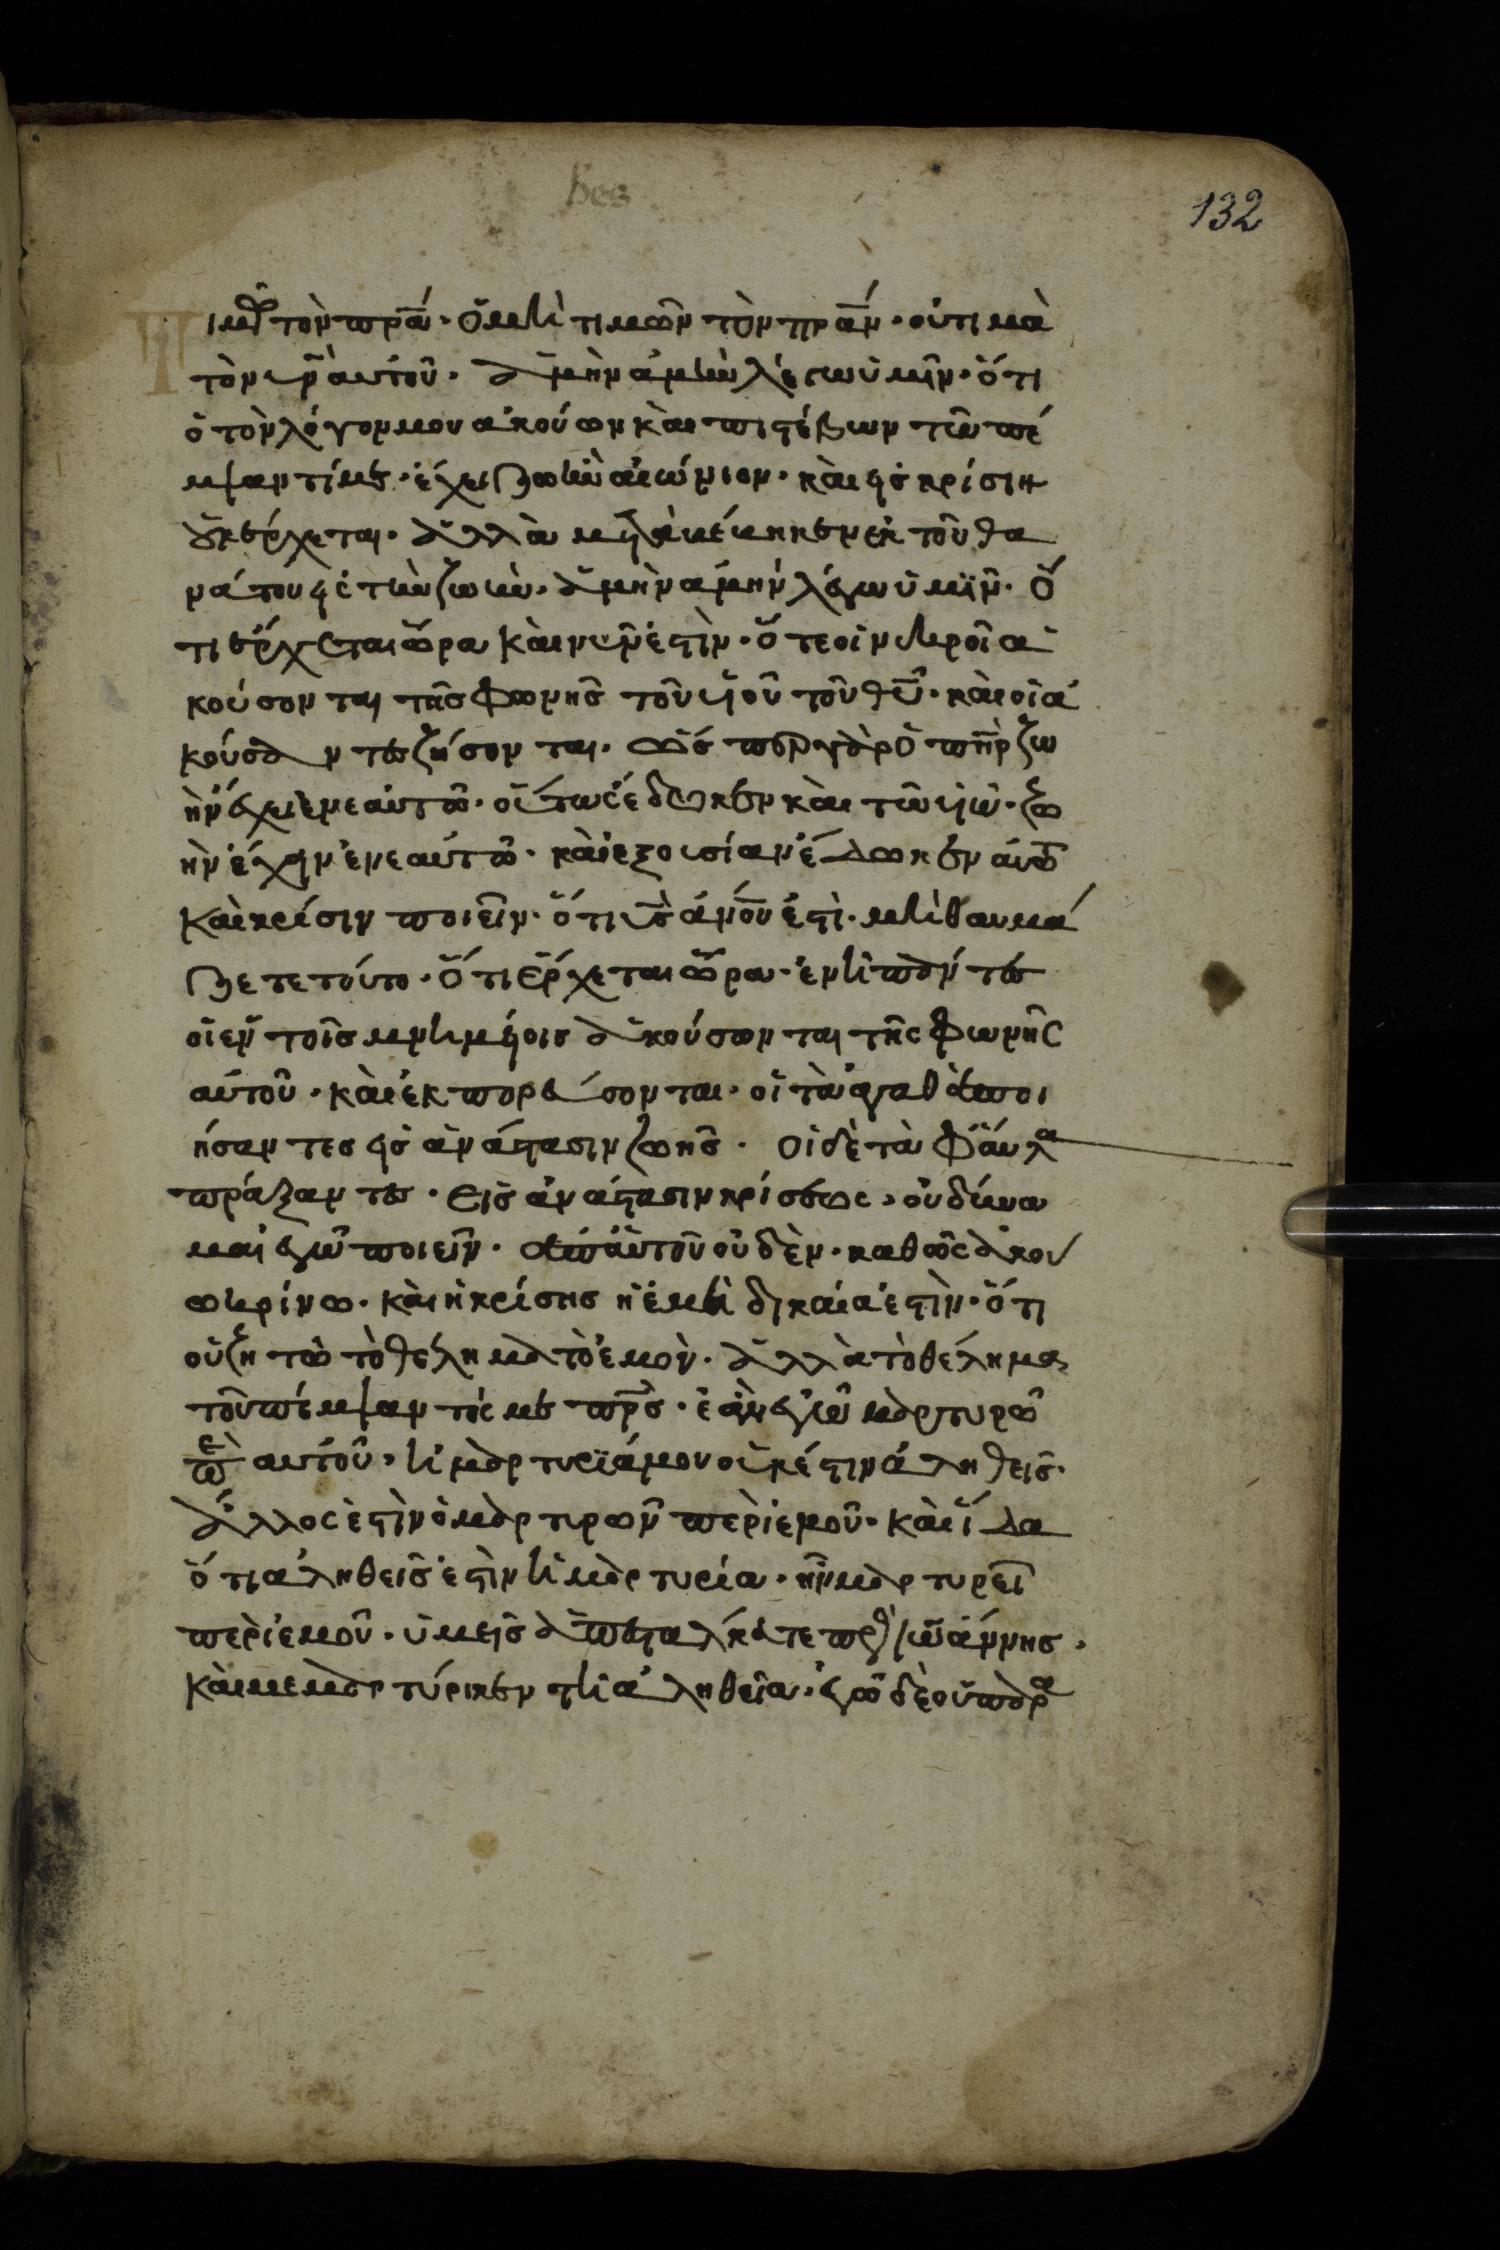 132
τιμῶ τὸν πρᾱ́· ὁ μὴ τιμῶν τὸν πρᾱ́ν· οὐ τιμὰ
τὸν υν̄ αὐτοῦ· ἀμὴν ἀμὴν λέγω ὑμῖν· ὅτι
ὁ τὸν λόγον μου ἀκούων καὶ πιστέβων τῶ πέ
μψαντί με· ἔχει ζωὴν αἰώνιον· καὶ εἰς κρίσιν
οὐκ έρχεται· ἀλλὰ μεταβέβηκεν ἐκ τοῦ θα
νάτου εἰς τὴν ζωήν· ἀμὴν ἀμὴν λέγω ὑμῖν· ὅ
τι έρχεται ὥρα καὶ νῦν ἐστὶν· ὅτε οἱ νεκροῖ ἀ
κούσονται τῆς φωνῆς τοῦ υἱοῦ τοῦ θῡ· καὶ οἱ ἀ
κούσαντες ζήσονται· ὥσπερ γὰρ ὁ πηρ̄ ζω
ὴν ἔχει ἐμεαὐτῶ· οὕτως ἔδωκεν καὶ τῶ υἱῶ· ζω
ὴν ἔχην ἐμεαύτῶ· καὶ ἐξουσίαν ἔδωκεν αὐτῶ
καὶ κρίσιν ποιεῖν· ὅτι υς̄ ἀνοῡ ἐστὶ· μὴ θαυμά
ζετε τούτο· ὅτι ἔρχεται ὥρα· ἐν ἡ πάντες
οἱ εν τοῖς μνημείοις ἀκούσωνται τῆς φωνῆς
αὐτοῦ· καὶ ἐκπορεύσονται· οἱ τὰ ἀγαθὰ ποι
ήσαντες εἰς ἀνάστασιν ζωῆς· οἱ δὲ τὰ φαύλα
πράξαντες· εἰς ἀνάστασιν κρίσεως· οὐ δύνα
μαι ἐγῶ ποιεῖν· ἀπ αὐτοῦ οὐδὲν· καθῶς ἀκού
ω κρίνω· καὶ ἡ κρίσης ἡ ἐμὴ δικαία ἐστὶν· ὅτι
οὐ ζητῶ τὸ θέλημα τὸ ἐμὸν· ἀλλὰ τὸ θέλημα
τοῦ πέμψαντός με πρ̄ς· ἐὰν ἐγῶ μαρτυρῶ
πὲ αυτοῦ· ἡ μαρτυρία μου οὐκ έστιν ἀληθεις·
ἄλλος ἐστὶν ὁ μαρτυρῶν περὶ ἐμοῦ· καὶ οἶδα
ὅτι ἀληθεις ἐστὶν ἡ μαρτυρία· ἣν μαρτυρεῖ
περὶ ἐμοῦ· ὑμεῖς ἀπεσταλκατε πρὸ ἰωάννης·
καὶ μεμαρτύρικεν τῆ ἀληθεία· ἐγῶ δὲ οὐ παρα